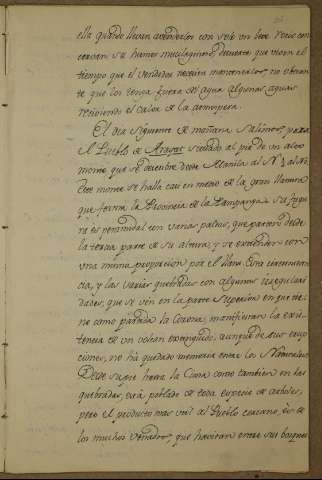 ella quando llevan a venderlos con solo un leve rocio con
servan su humor mucilaginoso, de suerte que viven el
tiempo que el vendedor necesita mantenerlos, no obstan
te que los tenga fuera de agua algunas aguas
resistiendo el calor de la atmosfera.
El dia siguiente de mañana salimos para
el Pueblo de Arayat situado al pie de un alto
monte que se descubre desde Manila al N
Este monte se halla casi en medio de la gran llanura
que forma la Provincia de la Pampanga su figu
ra es piramidal con varias faldas, que parten desde
la tercia parte de su altura y se extienden con
una misma proporcion por el llano. Esta circunstan
cia, y las varias quebradas con algunas irregulari
dades, que se ven en la parte superior en que tie
ne como partida la Corona, manifiestan la exis
tencia de un volcan extinguido, aunque de sus erup
ciones, no ha quedado memoria entre los Naturales.
Desde su pie hasta la Cima como tambien en las
quebradas, está poblado de toda especie de arboles,
pero el producto mas util al Pueblo cercano, es el de
los muchos venados, que havitan entre sus bosques